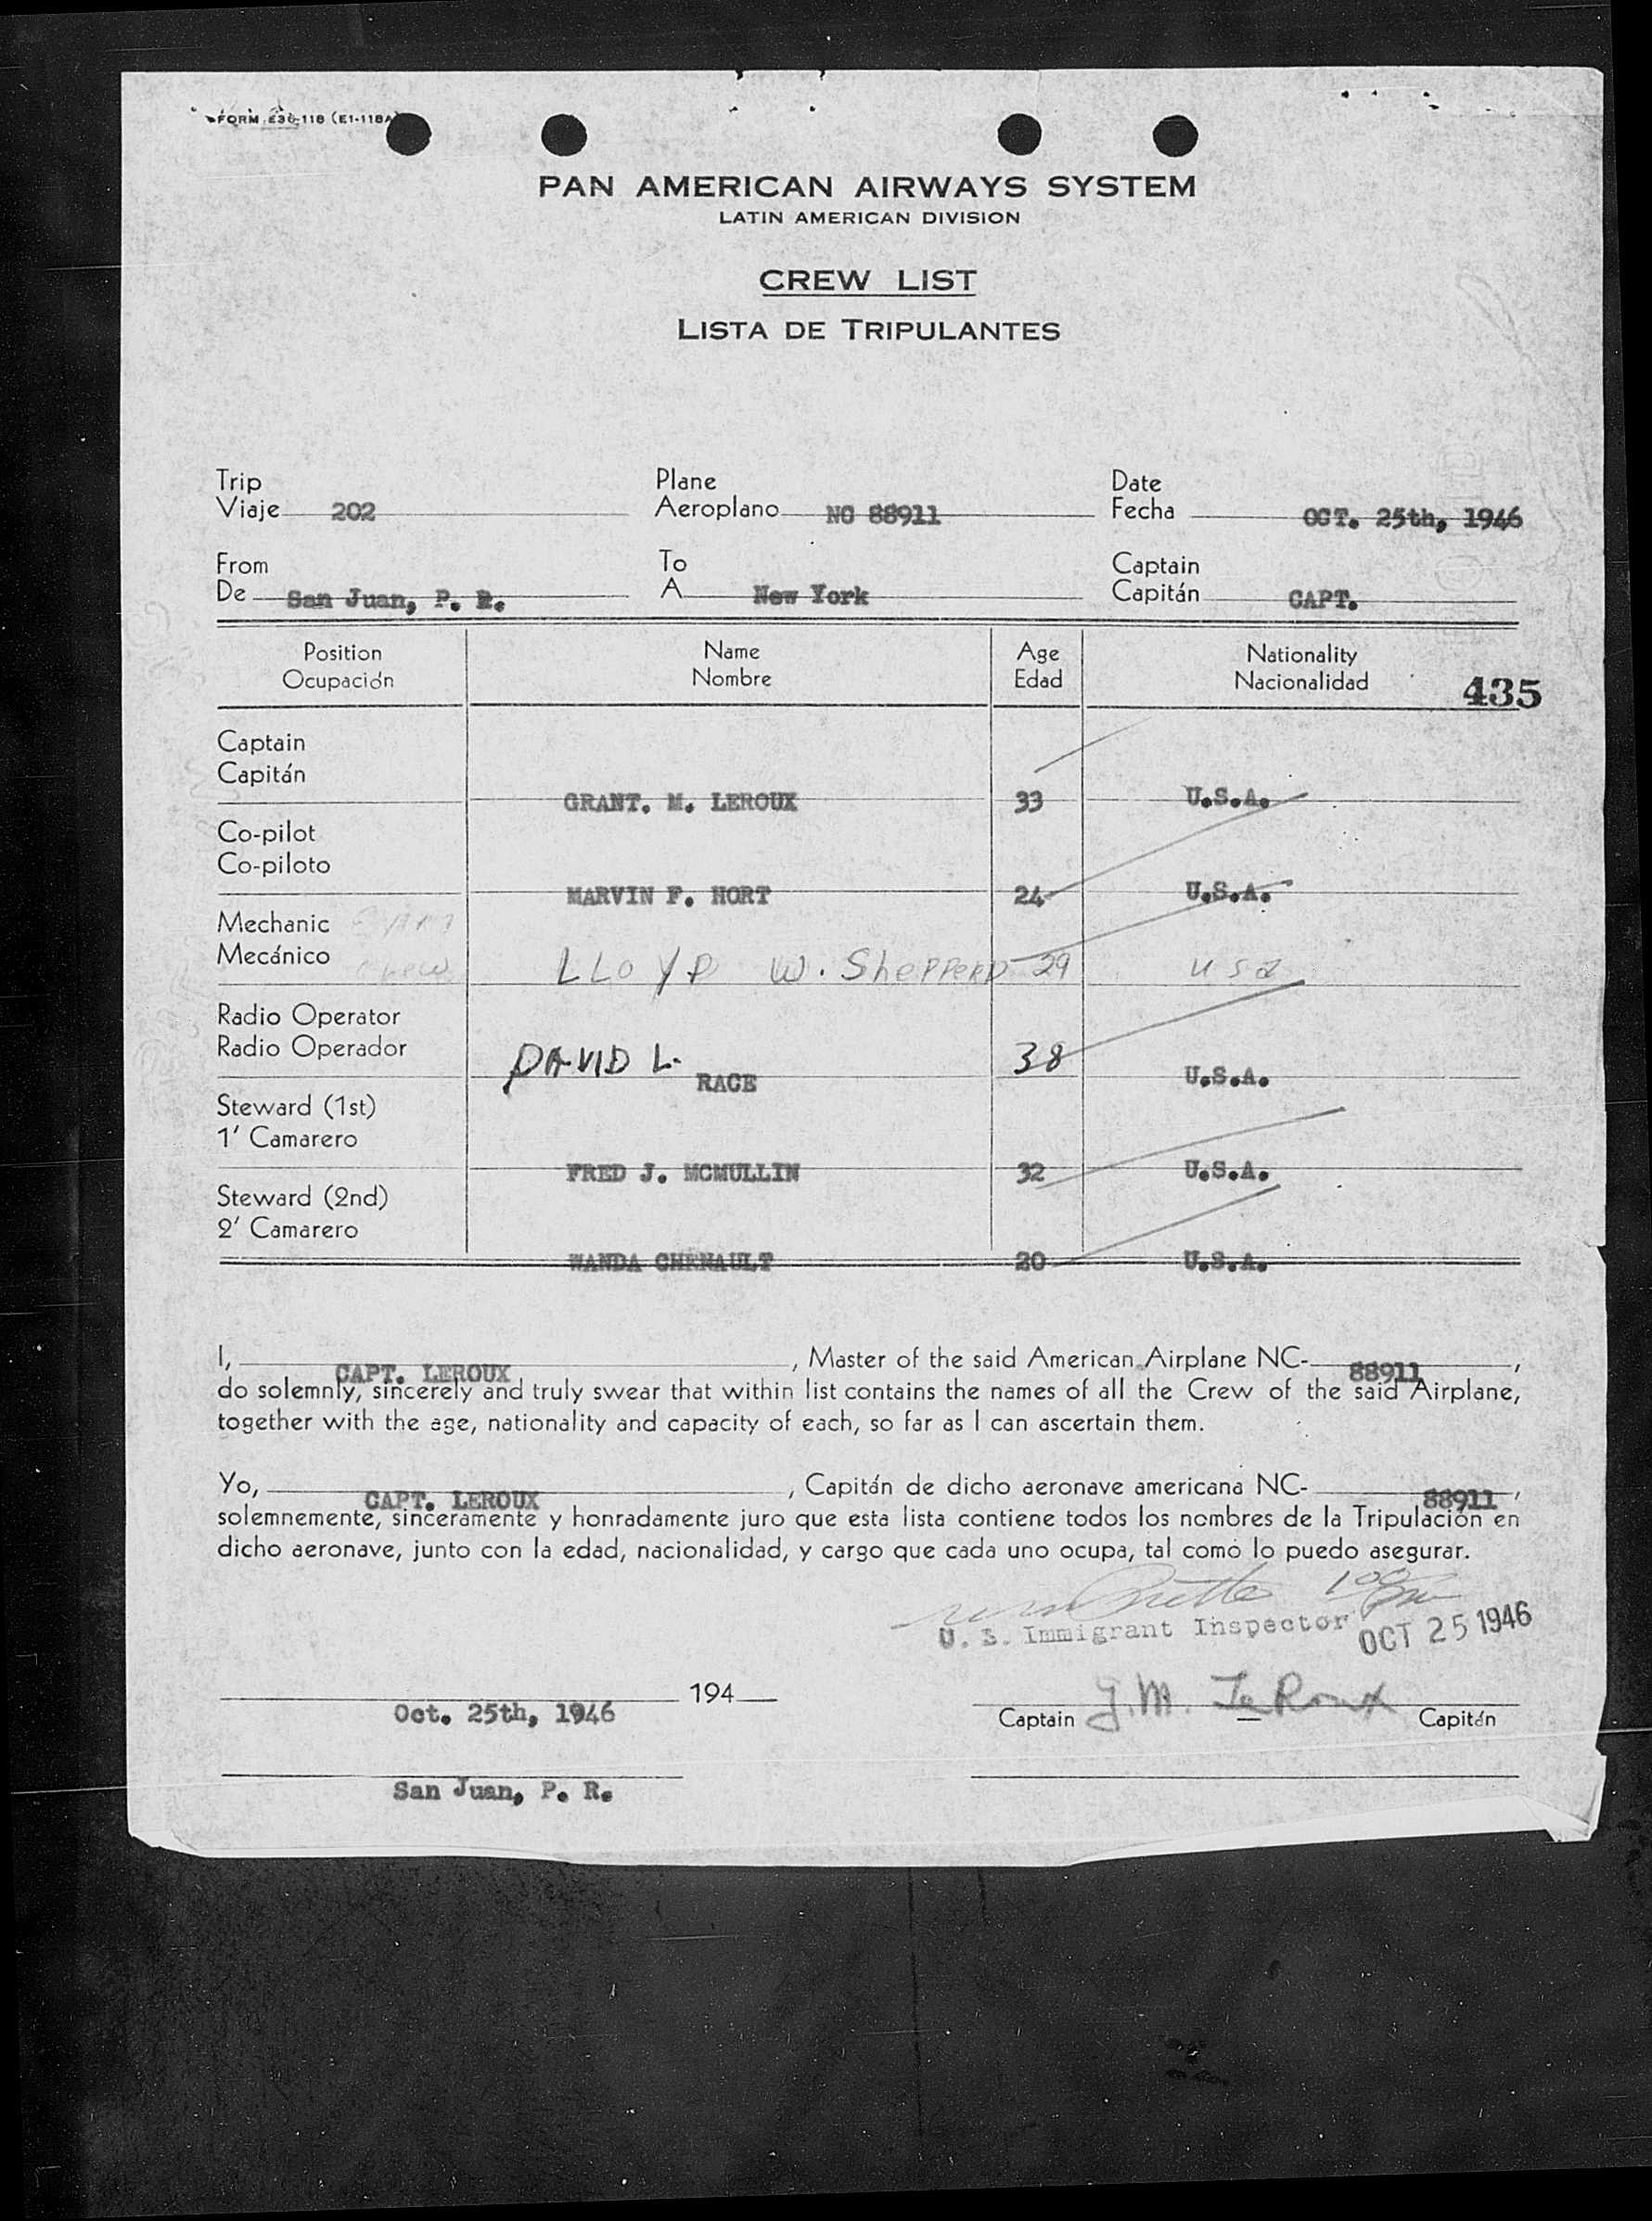 FORM E36-118 (E1-118A)
PAN AMERICAN AIRWAYS SYSTEM
LATIN AMERICAN DIVISION
CREW LIST
LISTA DE TRIPULANTES
Trip Plane Date
Viaje 202 Aeroplano NC 88911 Fecha OCT. 25th, 1946
From To Captain
De San Juan, P. R. A New York Capitán CAPT.
Position Name Age Nationality
Ocupación Nombre Edad Nacionalidad 435
Captain
Capitán
GRANT. M. LEROUX 33 U.S.A.
Co-pilot
Co-piloto
MARVIN F. HORT 24 U.S.A.
Mechanic
Mecánico LLOYD W. SHEPPERD 29 USA
Radio Operator
Radio Operador DAVID L. 38
RACE U.S.A.
Steward (1st)
1' Camarero
FRED J. MCMULLIN 32 U.S.A.
Steward (2nd)
2' Camarero
WANDA CHENAULT 20 U.S.A.
I, CAPT. LEROUX, Master of the said American Airplane NC-88911,
do solemnly, sincerely and truly swear that within list contains the names of all the Crew of the said Airplane,
together with the age, nationality and capacity of each, so far as I can ascertain them.
Yo, CAPT. LEROUX, Capitán de dicho aeronave americana NC-88911,
solemnemente, sinceramente y honradamente juro que esta lista contiene todos los nombres de la Tripulación en
dicho aeronave, junto con la edad, nacionalidad, y cargo que cada uno ocupa, tal como lo puedo asegurar.
U. S. Immigrant Inspector OCT 25 1946
194
Oct. 25th, 1946 Captain G.M. LeRoux Capitán
San Juan, P. R.